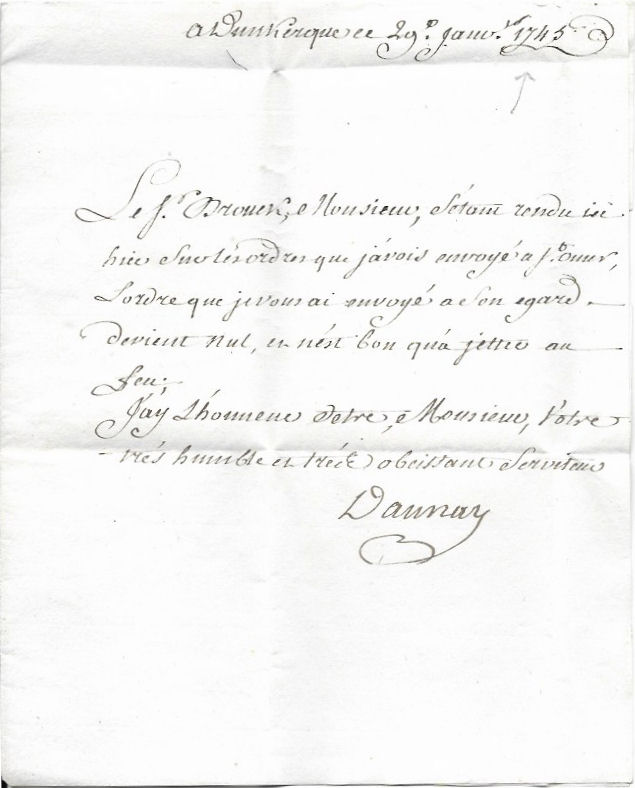 a Dunkerque ce 29e. Janvr. 1745
Le Sr. Brouck, Monsieur, s'étant rendu ici
hier sur les ordres que j'avois envoyé a St. omer,
L'ordre que je vous ai envoyé a Son egard
devient nul, et n'est bon qu'a jetter au
feu;
J'ay L'honneur d'etre, Monsieur, Votre
trés humble et trés obeissant Serviteur
Daunay